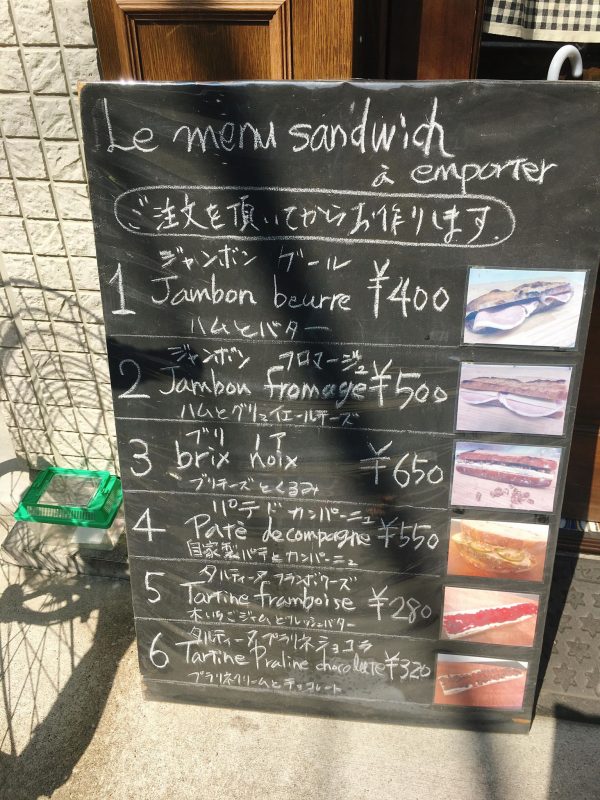 Le menu sandwich
à emporter
ご注文を頂いてからお作りします.
ジャンボン ブール
1 Jambon beurre ¥400
ハムとバター
ジャンボン フロマージュ
2 Jambon fromage ¥500
ハムとグリュイエールチーズ
ブリ ノア
3 brix noix ¥650
ブリチーズとくるみ
パテ ド カンパーニュ
4 Patè de compagne ¥550
自家製パテとカンパーニュ
タルティーヌ フランボワーズ
5 Tartine framboise ¥280
木いちごジャムとフレッシュバター
タルティーヌ プラリネ ショコラ
6 Tartine Praline chocolate ¥320
プラリネクリームとチョコレート